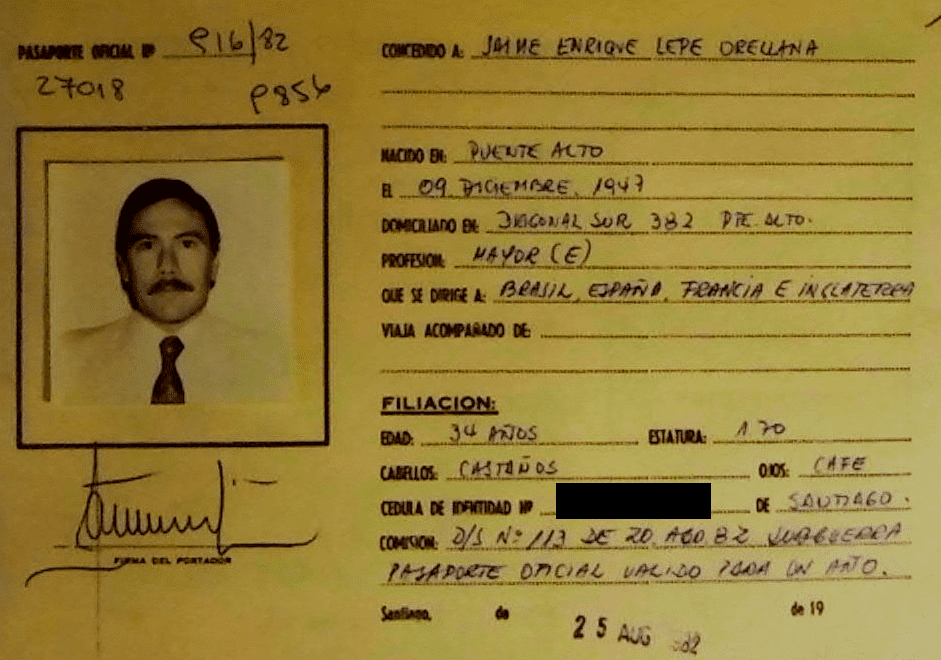 PASAPORTE OFICIAL Nº 916/82
27018 P856
CONCEDIDO A: JAIME ENRIQUE LEPE ORELLANA
NACIDO EN: PUENTE ALTO
EL 09 DICIEMBRE. 1947
DOMICILIADO EN: DIAGONAL SUR 382 PTE. ALTO.
PROFESION: MAYOR (E)
QUE SE DIRIGE A: BRASIL, ESPAÑA, FRANCIA E INGLATERRA
VIAJA ACOMPAÑADO DE:
FILIACION:
EDAD: 34 AÑOS ESTATURA: 1.70
CABELLOS: CASTAÑOS OJOS: CAFE
CEDULA DE IDENTIDAD Nº DE SANTIAGO.
COMISION: D/S Nº 113 DE 20. AGO. 82 SUBGUERRA
PASAPORTE OFICIAL VALIDO PARA UN AÑO.
Santiago, de de 19
25 AUG 982
FIRMA DEL PORTADOR